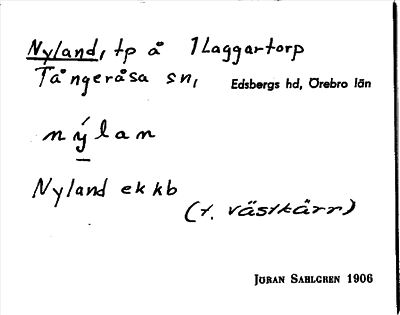 Nyland, tp å 1 Laggartorp
Tångeråsa sn, Edsbergs hd, Örebro län
nýlan
Nyland ek kb
(t. västkärr)
JÖRAN SAHLGREN 1906